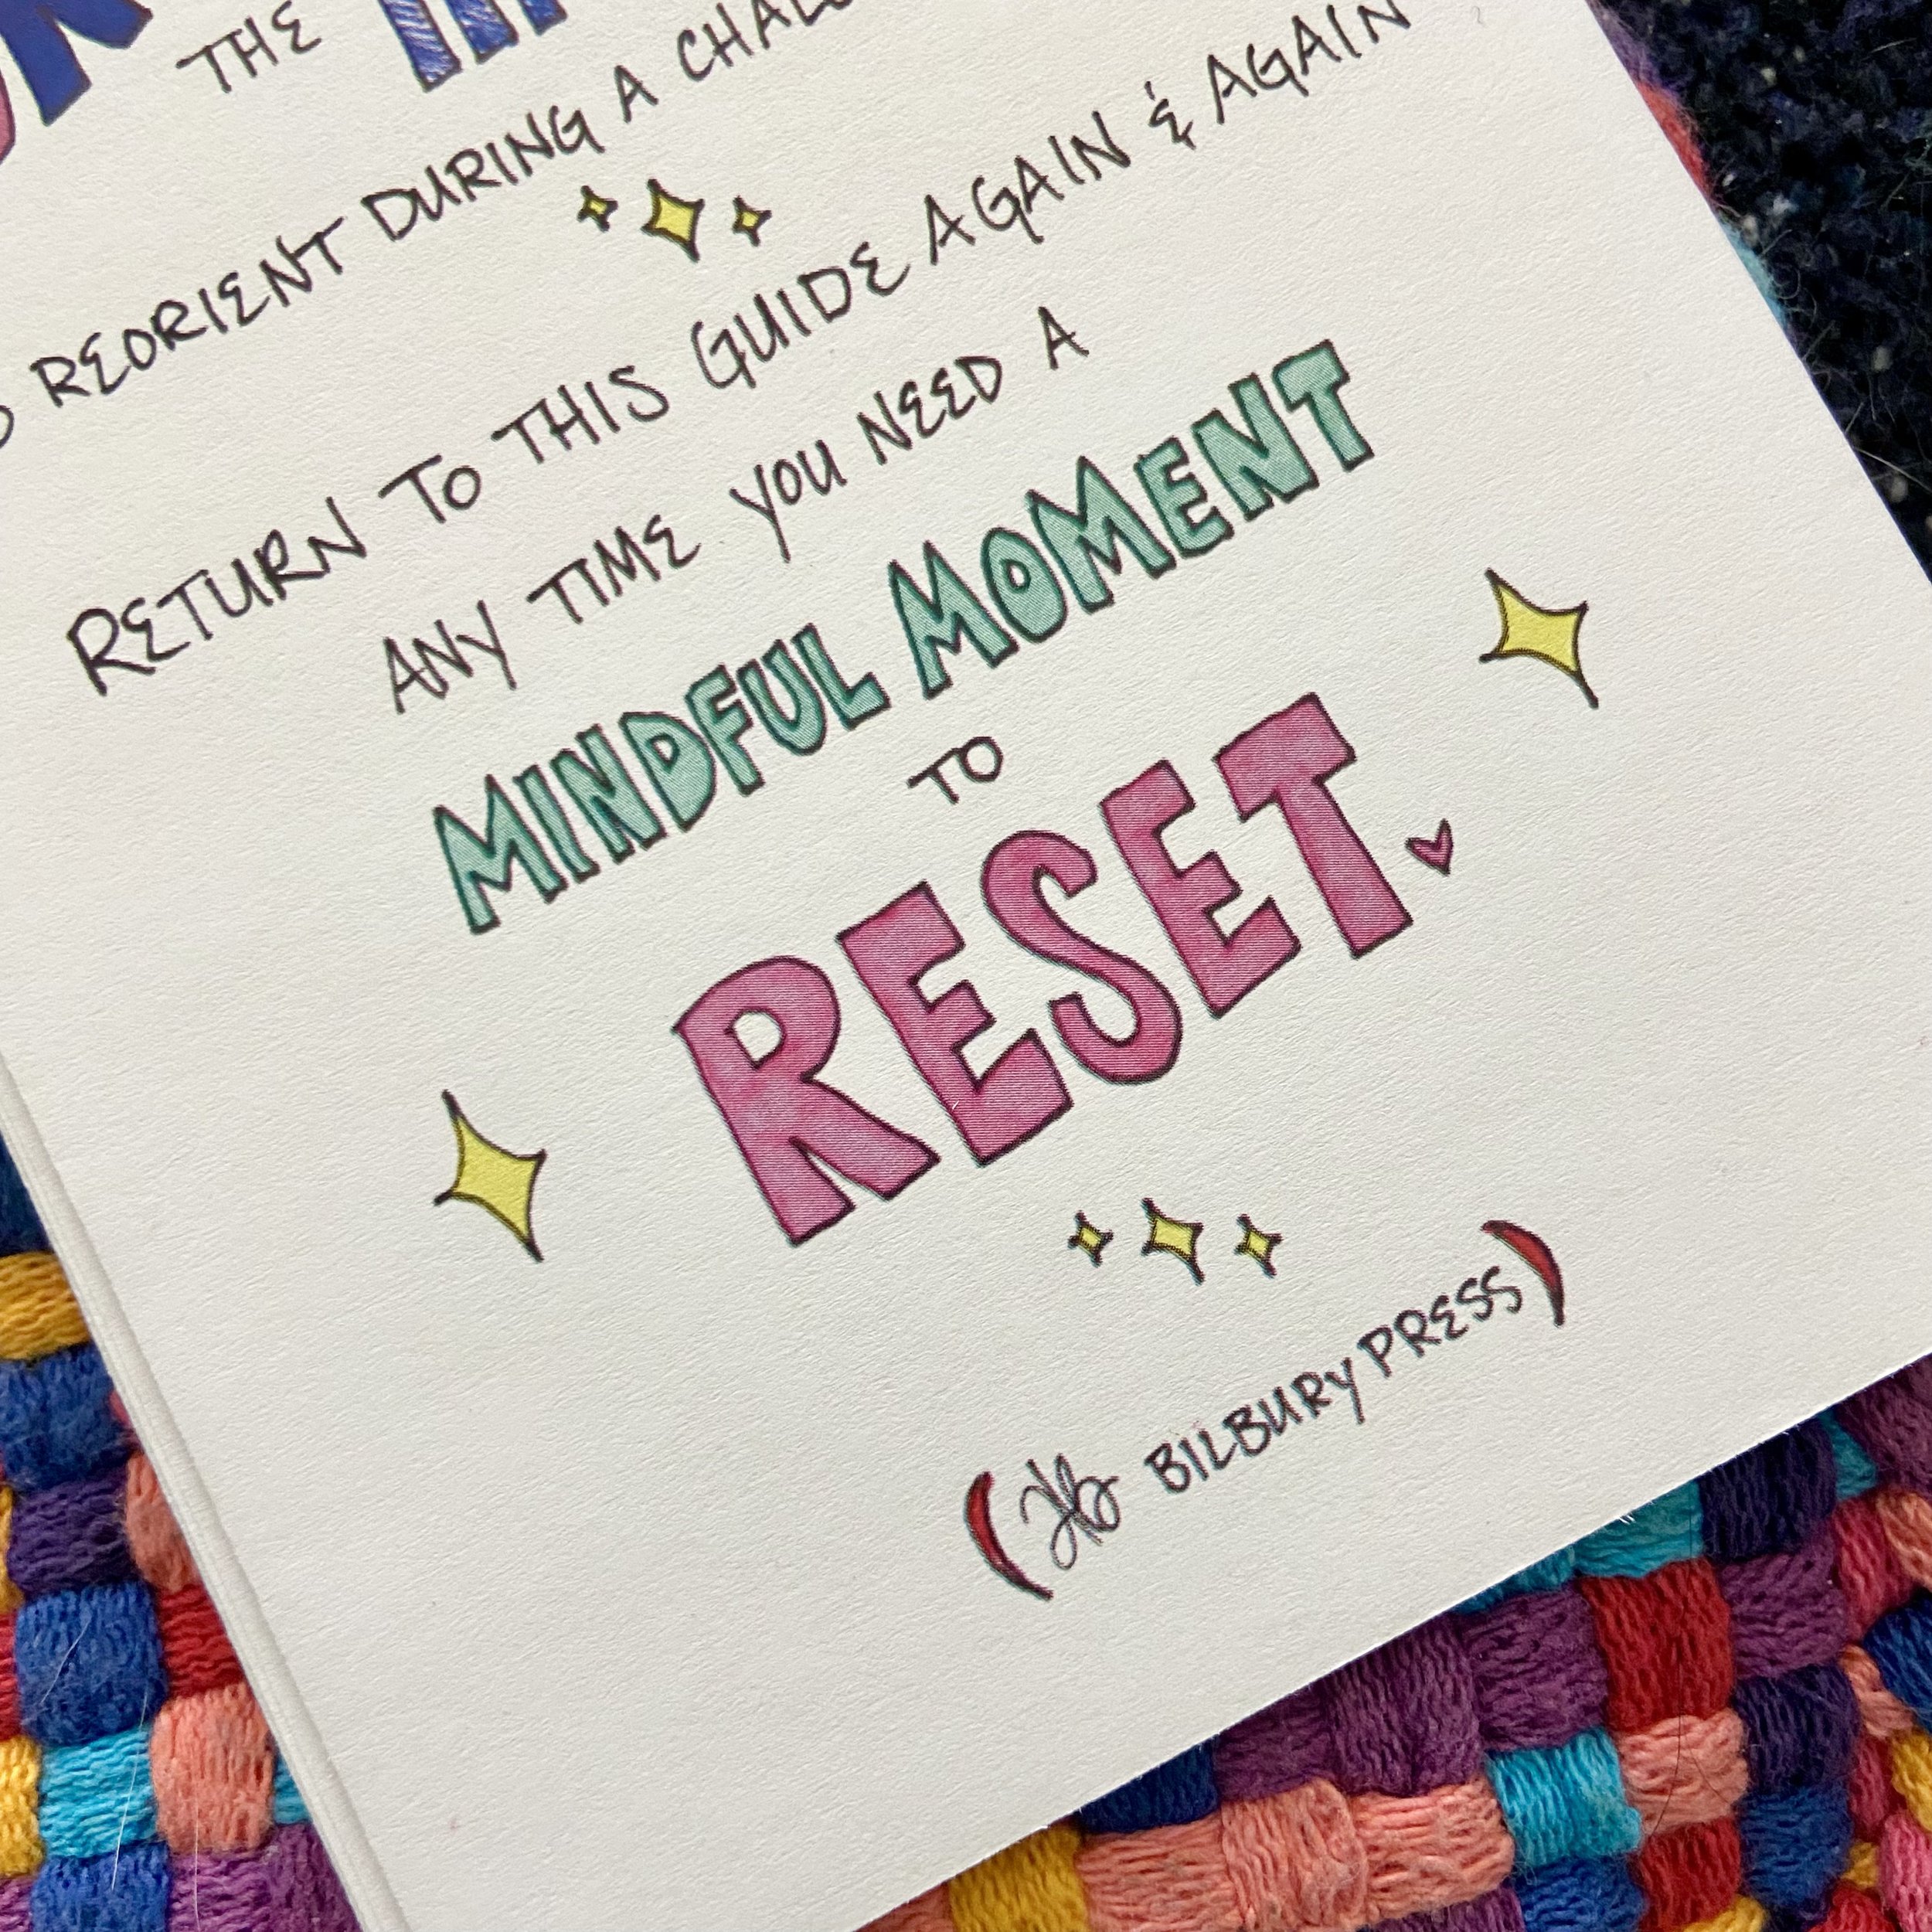 THE
REORIENT DURING A
RETURN TO THIS GUIDE AGAIN & AGAIN
ANY TIME YOU NEED A
MINDFUL MOMENT
TO
RESET.
BILBURY PRESS